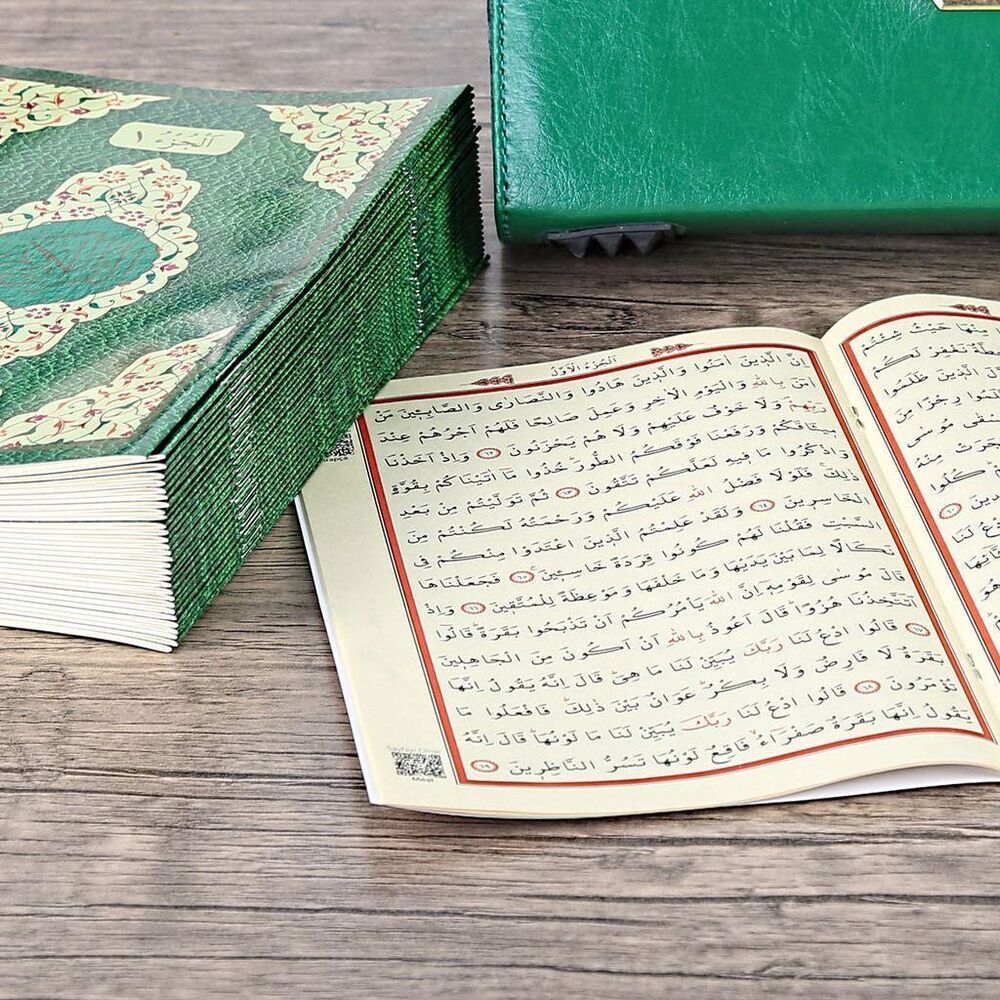 مِنْهَا حَيْثُ شِئْتُمْ
نَغْفِرْ لَكُمْ
الَّذِينَ ظَلَمُوا
رِجْزًا مِنَ
مُوسٰى
مِنْهُ
كُلُوا
٦٠
لَنَا
اَلْجُزْءُ الْاَوَّلُ
اِنَّ الَّذِينَ اٰمَنُوا وَالَّذِينَ هَادُوا وَالنَّصَارٰى وَالصَّابِـِٔينَ مَنْ
اٰمَنَ بِاللّٰهِ وَالْيَوْمِ الْاٰخِرِ وَعَمِلَ صَالِحًا فَلَهُمْ اَجْرُهُمْ عِنْدَ
رَبِّهِمْ وَلَا خَوْفٌ عَلَيْهِمْ وَلَا هُمْ يَحْزَنُونَ ٦٢ وَاِذْ اَخَذْنَا
مِيثَاقَكُمْ وَرَفَعْنَا فَوْقَكُمُ الطُّورَ خُذُوا مَا اٰتَيْنَاكُمْ بِقُوَّةٍ
وَاذْكُرُوا مَا فِيهِ لَعَلَّكُمْ تَتَّقُونَ ٦٣ ثُمَّ تَوَلَّيْتُمْ مِنْ بَعْدِ
ذٰلِكَ فَلَوْلَا فَضْلُ اللّٰهِ عَلَيْكُمْ وَرَحْمَتُهُ لَكُنْتُمْ مِنَ
الْخَاسِرِينَ ٦٤ وَلَقَدْ عَلِمْتُمُ الَّذِينَ اعْتَدَوْا مِنْكُمْ فِي
السَّبْتِ فَقُلْنَا لَهُمْ كُونُوا قِرَدَةً خَاسِـِٔينَ ٦٥ فَجَعَلْنَاهَا
نَكَالًا لِمَا بَيْنَ يَدَيْهَا وَمَا خَلْفَهَا وَمَوْعِظَةً لِلْمُتَّقِينَ ٦٦ وَاِذْ
قَالَ مُوسٰى لِقَوْمِهِ اِنَّ اللّٰهَ يَأْمُرُكُمْ اَنْ تَذْبَحُوا بَقَرَةً قَالُوا
اَتَتَّخِذُنَا هُزُوًا قَالَ اَعُوذُ بِاللّٰهِ اَنْ اَكُونَ مِنَ الْجَاهِلِينَ ٦٧
قَالُوا ادْعُ لَنَا رَبَّكَ يُبَيِّنْ لَنَا مَا هِيَ قَالَ اِنَّهُ يَقُولُ اِنَّهَا
بَقَرَةٌ لَا فَارِضٌ وَلَا بِكْرٌ عَوَانٌ بَيْنَ ذٰلِكَ فَافْعَلُوا مَا
تُؤْمَرُونَ ٦٨ قَالُوا ادْعُ لَنَا رَبَّكَ يُبَيِّنْ لَنَا مَا لَوْنُهَا قَالَ اِنَّهُ
يَقُولُ اِنَّهَا بَقَرَةٌ صَفْرَاءُ فَاقِعٌ لَوْنُهَا تَسُرُّ النَّاظِرِينَ ٦٩
Meal